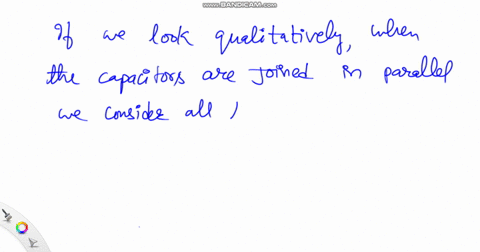 www.BANDICAM.com
If we look qualitatively, when
the capacitors are joined in parallel
we consider all